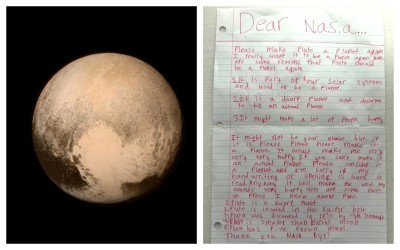 Dear Nasa...
Please make Pluto a planet again
I really want it to be a Planet again here
are some reasons that Pluto should
be a Planet again
1 It is Part of our Solar system
and used to be a Planet.
2 It is a dwarf Planet and deserves
to be an actual Planet
3 It might make a lot of People happy
It might not be your choice but if
it is Please Please Please make it
a Planet. It would make me very
very very happy. If you can't make it
an actual Planet Please consider it
a Planet and am sorry if my
hand writing or spelling is hard to
read. Any way it will make me and my
friends very happy here are some facts
I know about Pluto:
1 Pluto is a dwarf Planet
2 Pluto is located in the kuiper belt
3 Pluto was discovered in 1930 by
4 Pluto is smaller than Earth's moon
5 Pluto has five known moons
Thank you NASA bye!